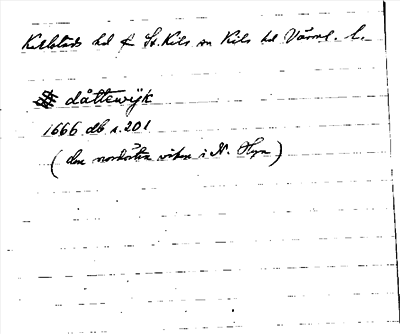 Karlstads hd f. St. Kils sn Kils hd Värml. l.
dåttewijk
1666 db s. 201
(den nordöstra viken i N. Hyn)